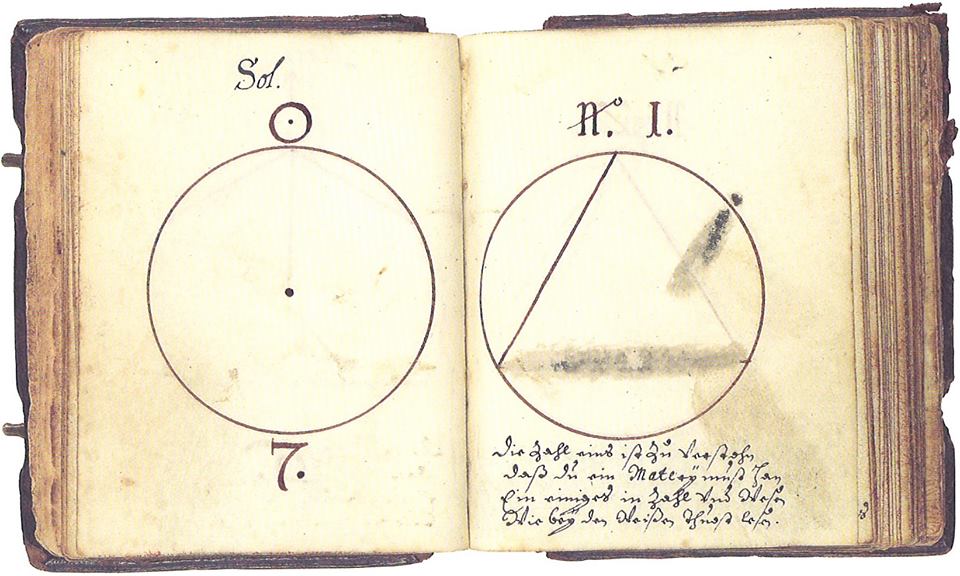 Sol.
7.
No. 1.
Die Zahl eins ist Zu Verstehn
daß du ein Matery must han
Ein einiges in Zahl Vnd Wesen
Wie bey den Weisen Thuost lesen.